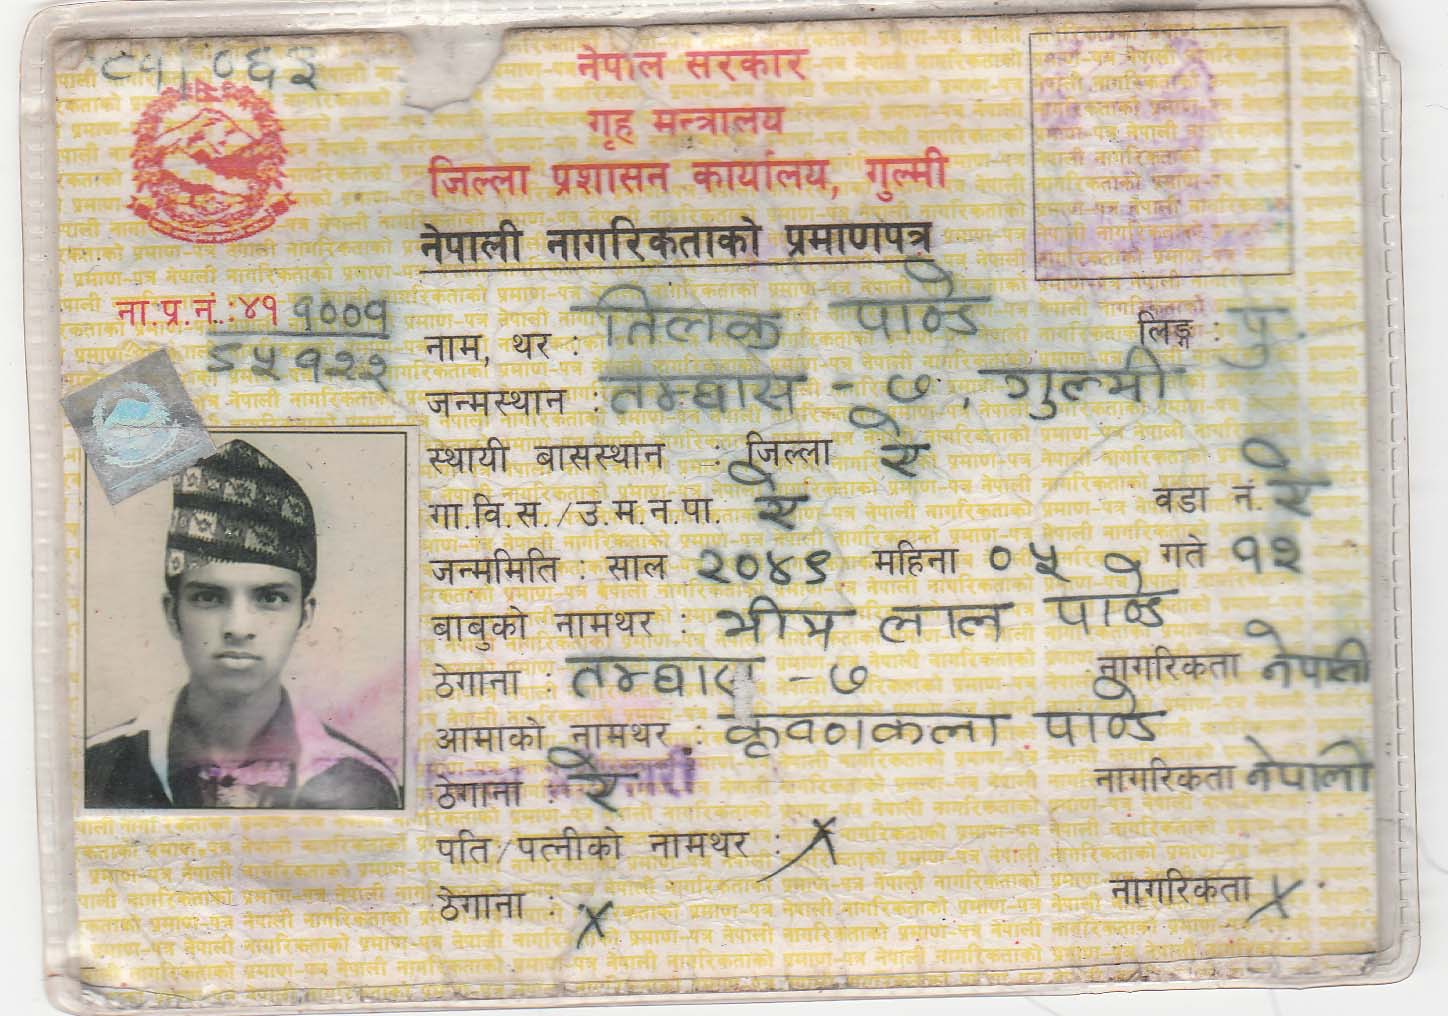 ८५/०६३
नेपाल सरकार
गृह मन्त्रालय
जिल्ला प्रशासन कार्यालय, गुल्मी
नेपाली नागरिकताको प्रमाणपत्र
ना.प्र.नं.:४१ १००१
६५१२२
नाम, थर : तिलक पाण्डे लिङ्ग : पु.
जन्मस्थान : तम्घास - ७, गुल्मी
स्थायी बासस्थान : जिल्ला ऐ
गा.वि.स./उ.म.न.पा. ऐ वडा नं. ऐ
जन्ममिति : साल २०४९ महिना ०५ गते १२
बाबुको नामथर : भीम लाल पाण्डे
ठेगाना : तम्घास - ७ नागरिकता नेपाली
आमाको नामथर : कृष्णकला पाण्डे
ठेगाना : ऐ नागरिकता नेपाली
पति/पत्नीको नामथर : X
ठेगाना : X नागरिकता X